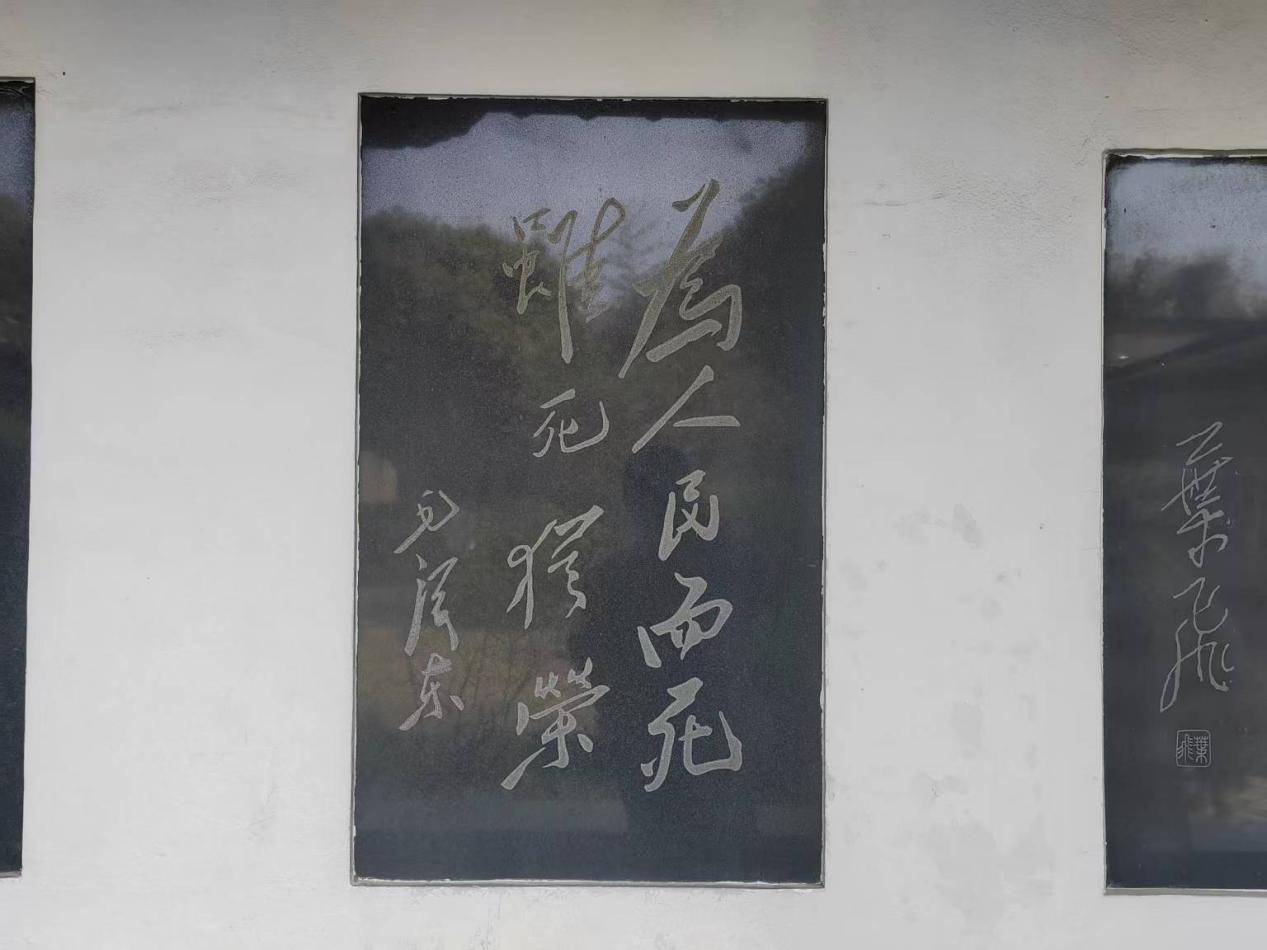 為人民而死
雖死猶榮
毛泽东
葉飛
葉飛